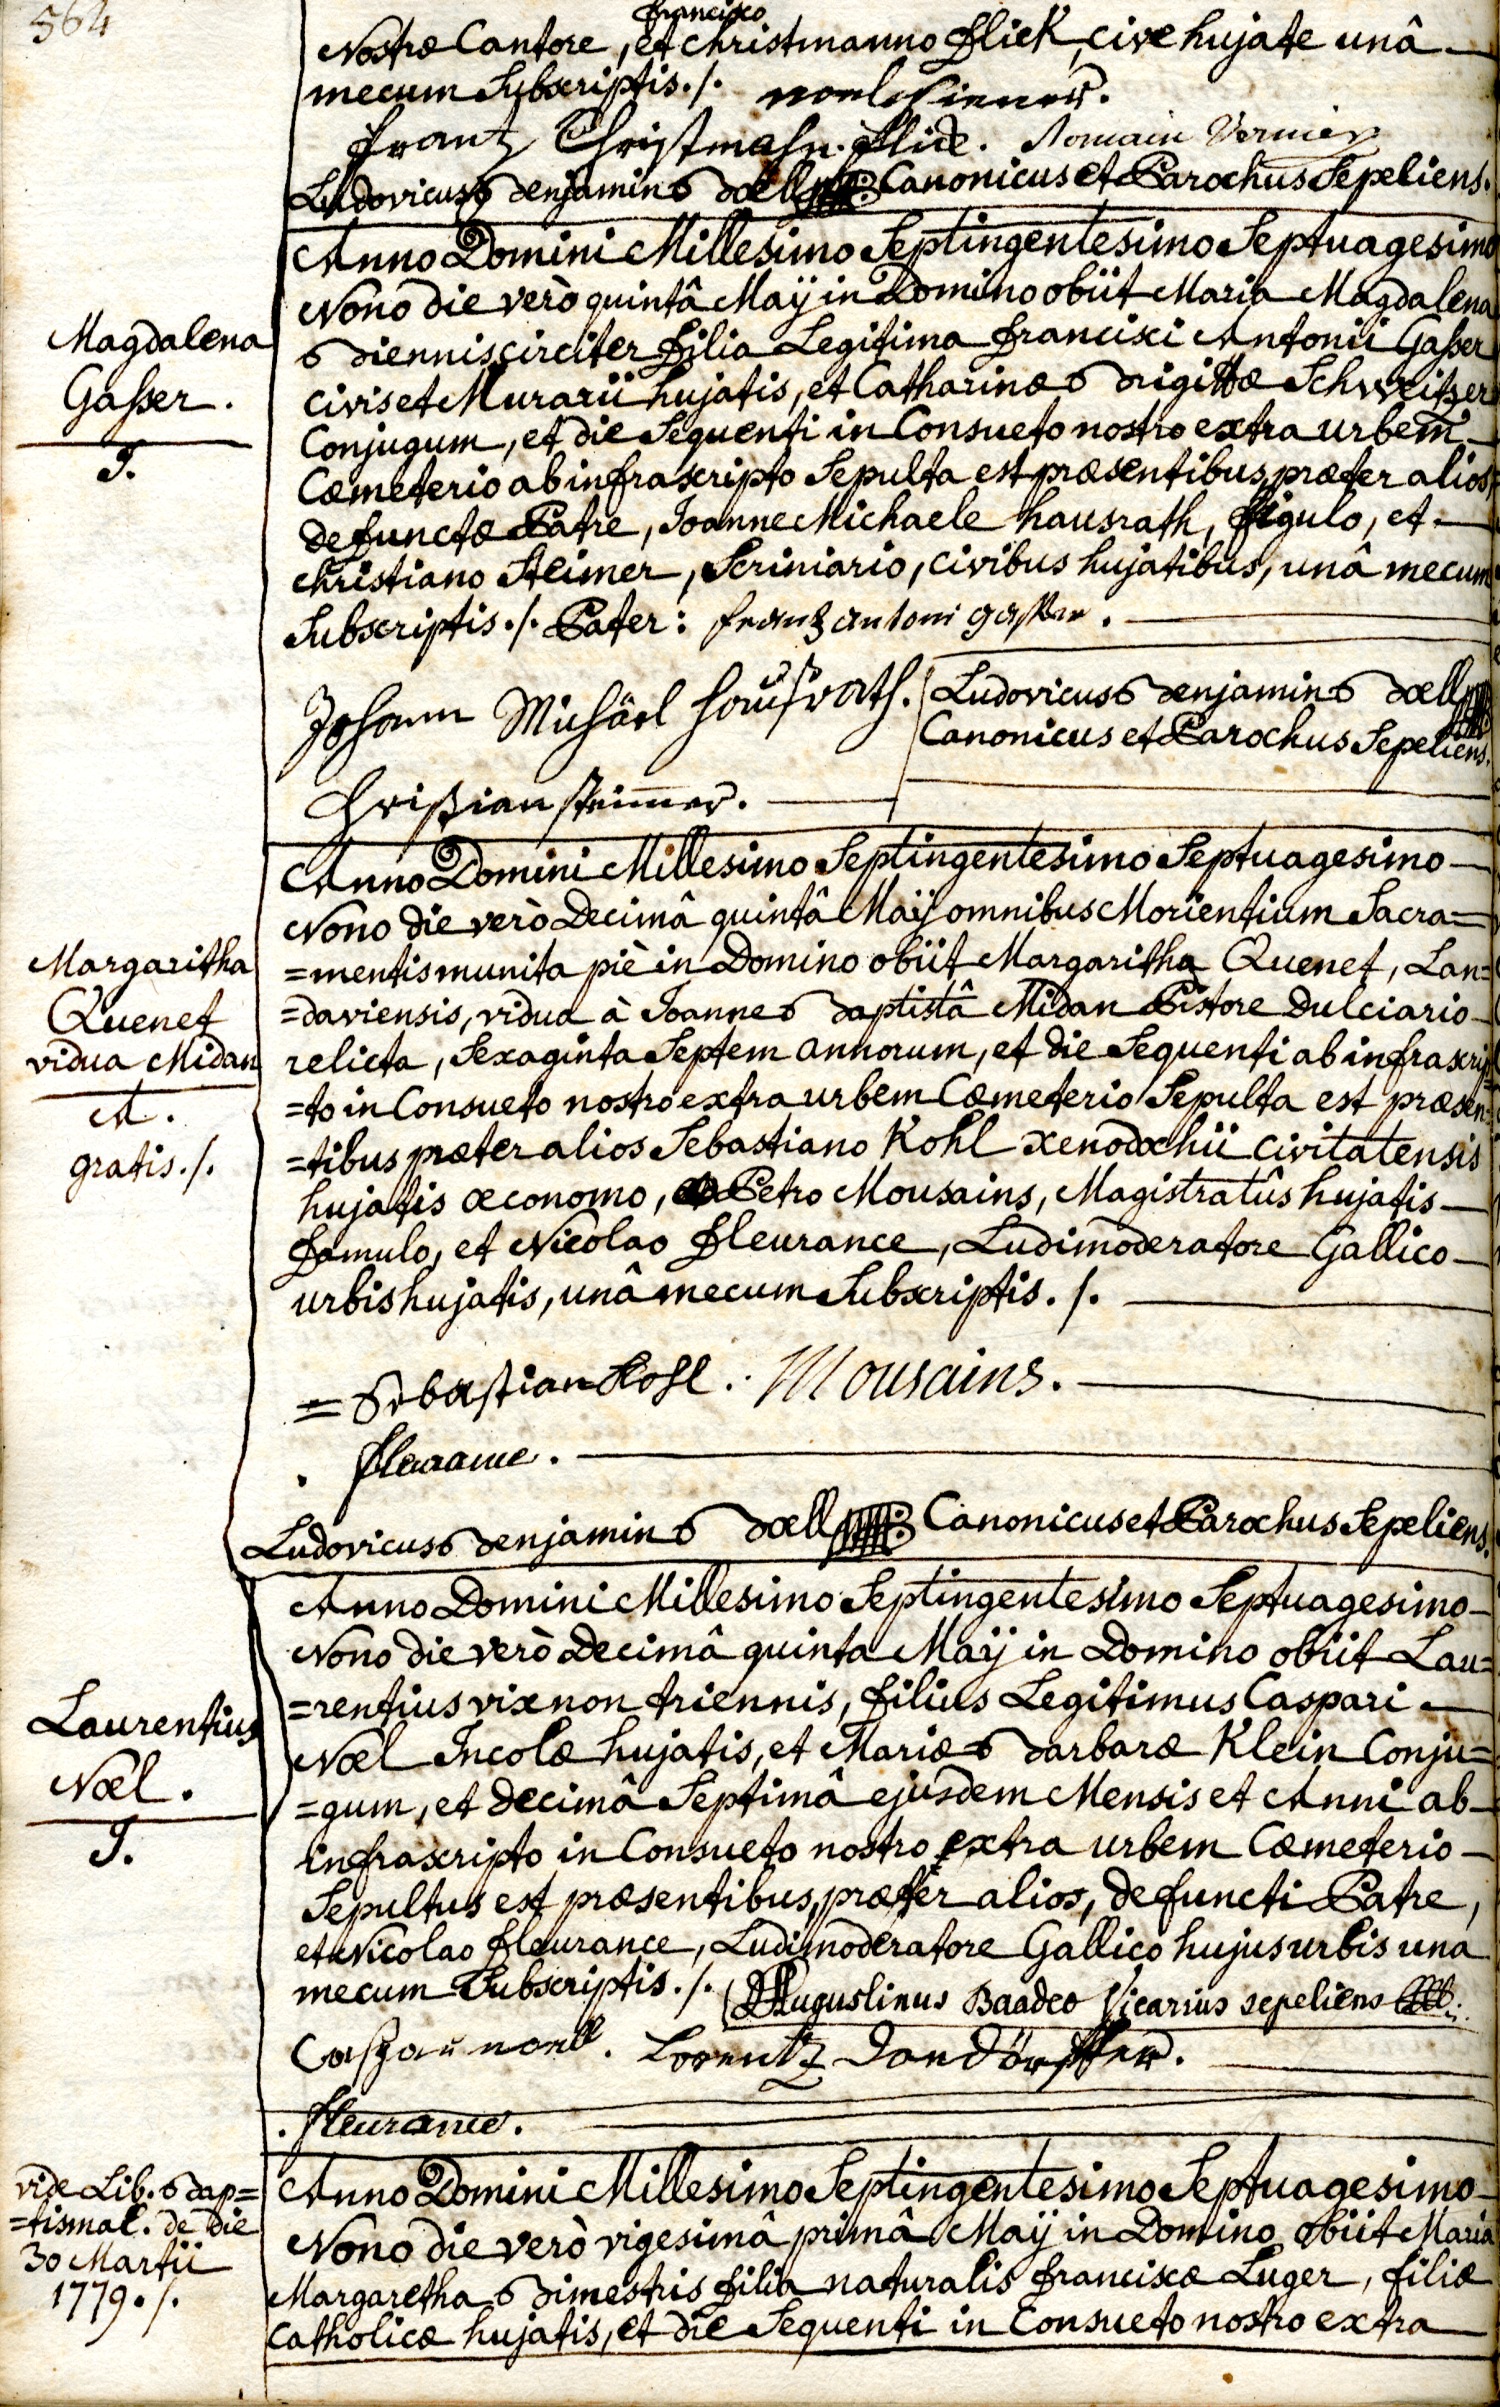 564
francisco
Nostræ Cantore, et christmanno flick, cive hujate unâ
mecum Subscriptis ./.
frantz Christmahn flick. Romain Vernier
Ludovicus Benjamin Boell Canonicus et Parochus Sepeliens.
Magdalena
Gasser.
I.
Anno Domini Millesimo Septingentesimo Septuagesimo
Nono die verò quintâ Maÿ in Domino obiit Maria Magdalena
Biennis circiter filia Legitima francisci Antonii Gasser
civis et Murarii hujatis, et Catharinæ Brigittæ Schweitzer
Conjugum, et die Sequenti in Consueto nostro extra urbem
Cœmeterio ab infrascripto Sepulta est præsentibus, præter alios,
defunctæ Patre, Joanne Michaele hausrath, figulo, et
christiano Steimer, Scriniario, civibus hujatibus, unâ mecum
Subscriptis ./. Pater: frantz antoni gasser.
Johann Michäel Haußrath.
Ludovicus Benjamin Boell
Canonicus et Parochus Sepeliens.
Christian steimer.
Margaritha
Quenet
vidua Midan
A.
gratis ./.
Anno Domini Millesimo Septingentesimo Septuagesimo
Nono die verò Decimâ quintâ Maÿ omnibus Morientium Sacra=
=mentis munita piè in Domino obiit Margaritha Quenet, Lan=
=daviensis, vidua à Joanne Baptistâ Midan Pistore Dulciario
relicta, Sexaginta Septem annorum, et die Sequenti ab infrascrip=
=to in Consueto nostro extra urbem Cœmeterio Sepulta est præsen=
=tibus præter alios Sebastiano Kohl xenodochii civitatensis
hujatis œconomo, Petro Mousains, Magistratûs hujatis
famulo, et Nicolao fleurance, Ludimoderatore Gallico
urbis hujatis, unâ mecum Subscriptis ./.
= Sebastian Kohl. Mousains.
fleurance.
Ludovicus Benjamin Boell Canonicus et Parochus Sepeliens.
Laurentius
Noël.
I.
Anno Domini Millesimo Septingentesimo Septuagesimo
Nono die verò Decimâ quinta Maÿ in Domino obiit Lau=
=rentius vix non triennis, filius Legitimus Caspari
Noël Incolæ hujatis, et Mariæ Barbaræ Klein Conju=
=gum, et decimâ Septimâ ejusdem Mensis et Anni ab
infrascripto in Consueto nostro extra urbem Cœmeterio
Sepultus est præsentibus, præter alios, defuncti Patre,
et Nicolao fleurance, Ludimoderatore Gallico hujus urbis una
mecum Subscriptis ./. Augustinus Baadeo Vicarius sepeliens
Caspar noell. Lorentz
fleurance.
vide Lib. Bap=
=tismal. de die
30 Martii
1779 ./.
Anno Domini Millesimo Septingentesimo Septuagesimo
Nono die verò vigesimâ primâ Maÿ in Domino obiit Maria
Margaretha Bimestris filia naturalis franciscæ Luger, filiæ
catholicæ hujatis, et die Sequenti in Consueto nostro extra